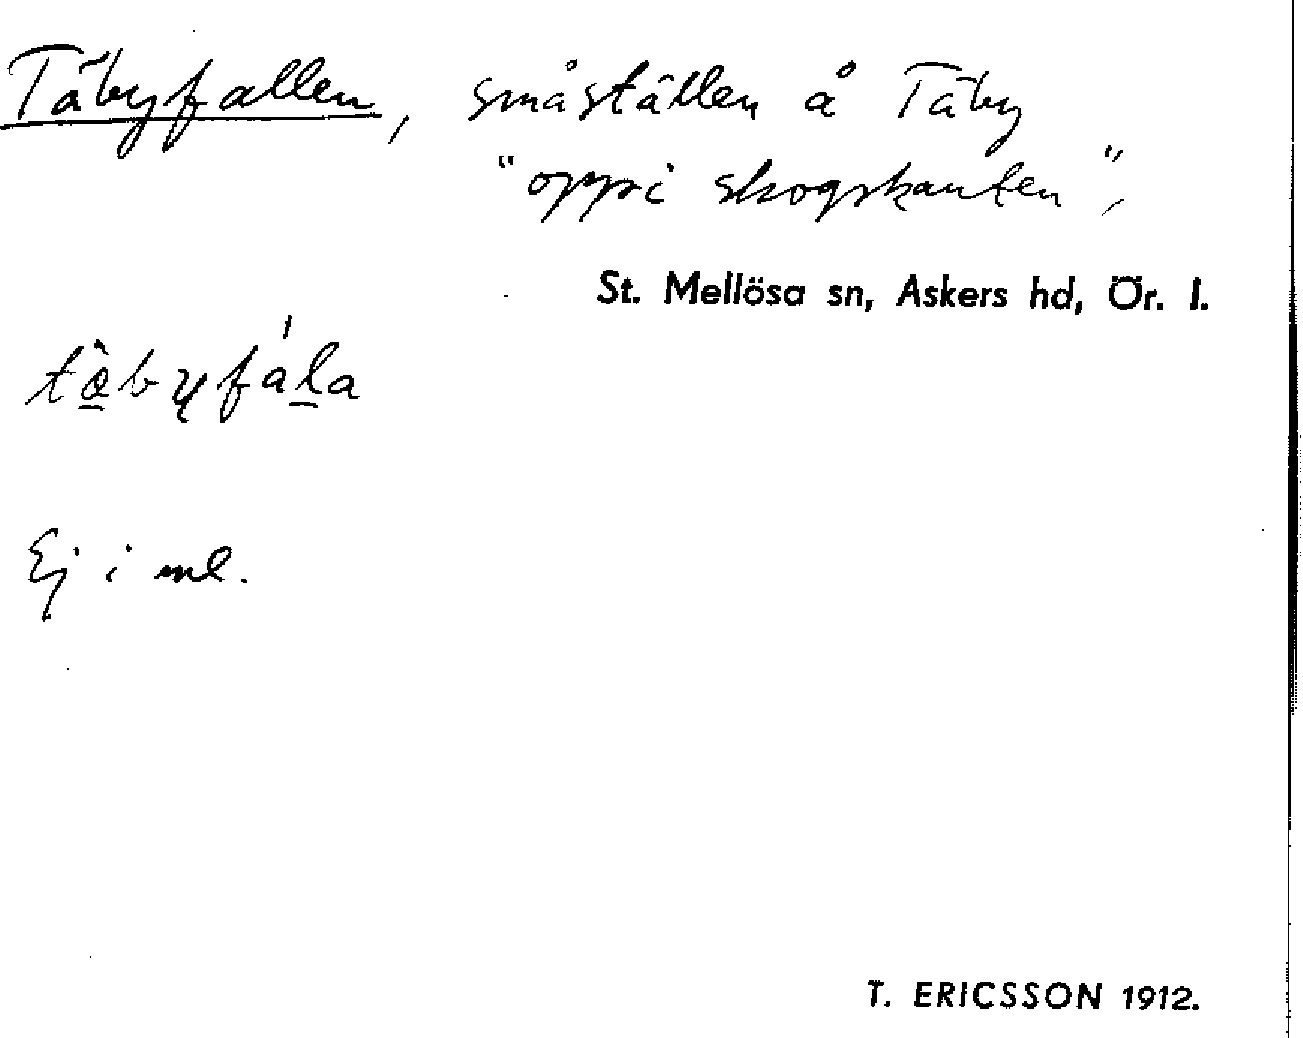 Täbyfallen, småställen å Täby
"oppi skogskanten",
St. Mellösa sn, Askers hd, Ör. l.
Ej i ml.
T. ERICSSON 1912.